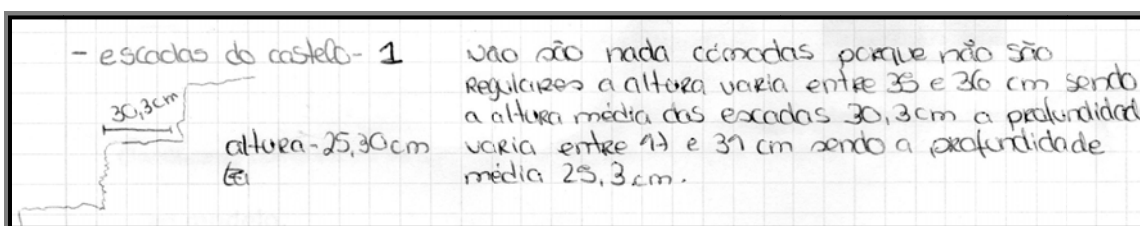 - escadas do castelo - 1
não são nada cómodas porque não são
Regulares a altura varia entre 35 e 36 cm sendo
a altura média das escadas 30,3cm a profundidad
varia entre 17 e 31 cm sendo a profundidade
média 25,3 cm.
30,3cm
altura-25,30cm